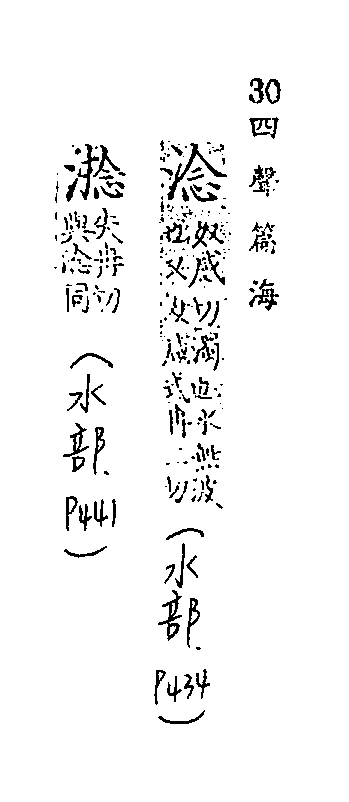 30 四聲篇海
淰 奴感切濁也水無波也又女式冉二切（水部.P434）
失冉切與淰同（水部.P441）